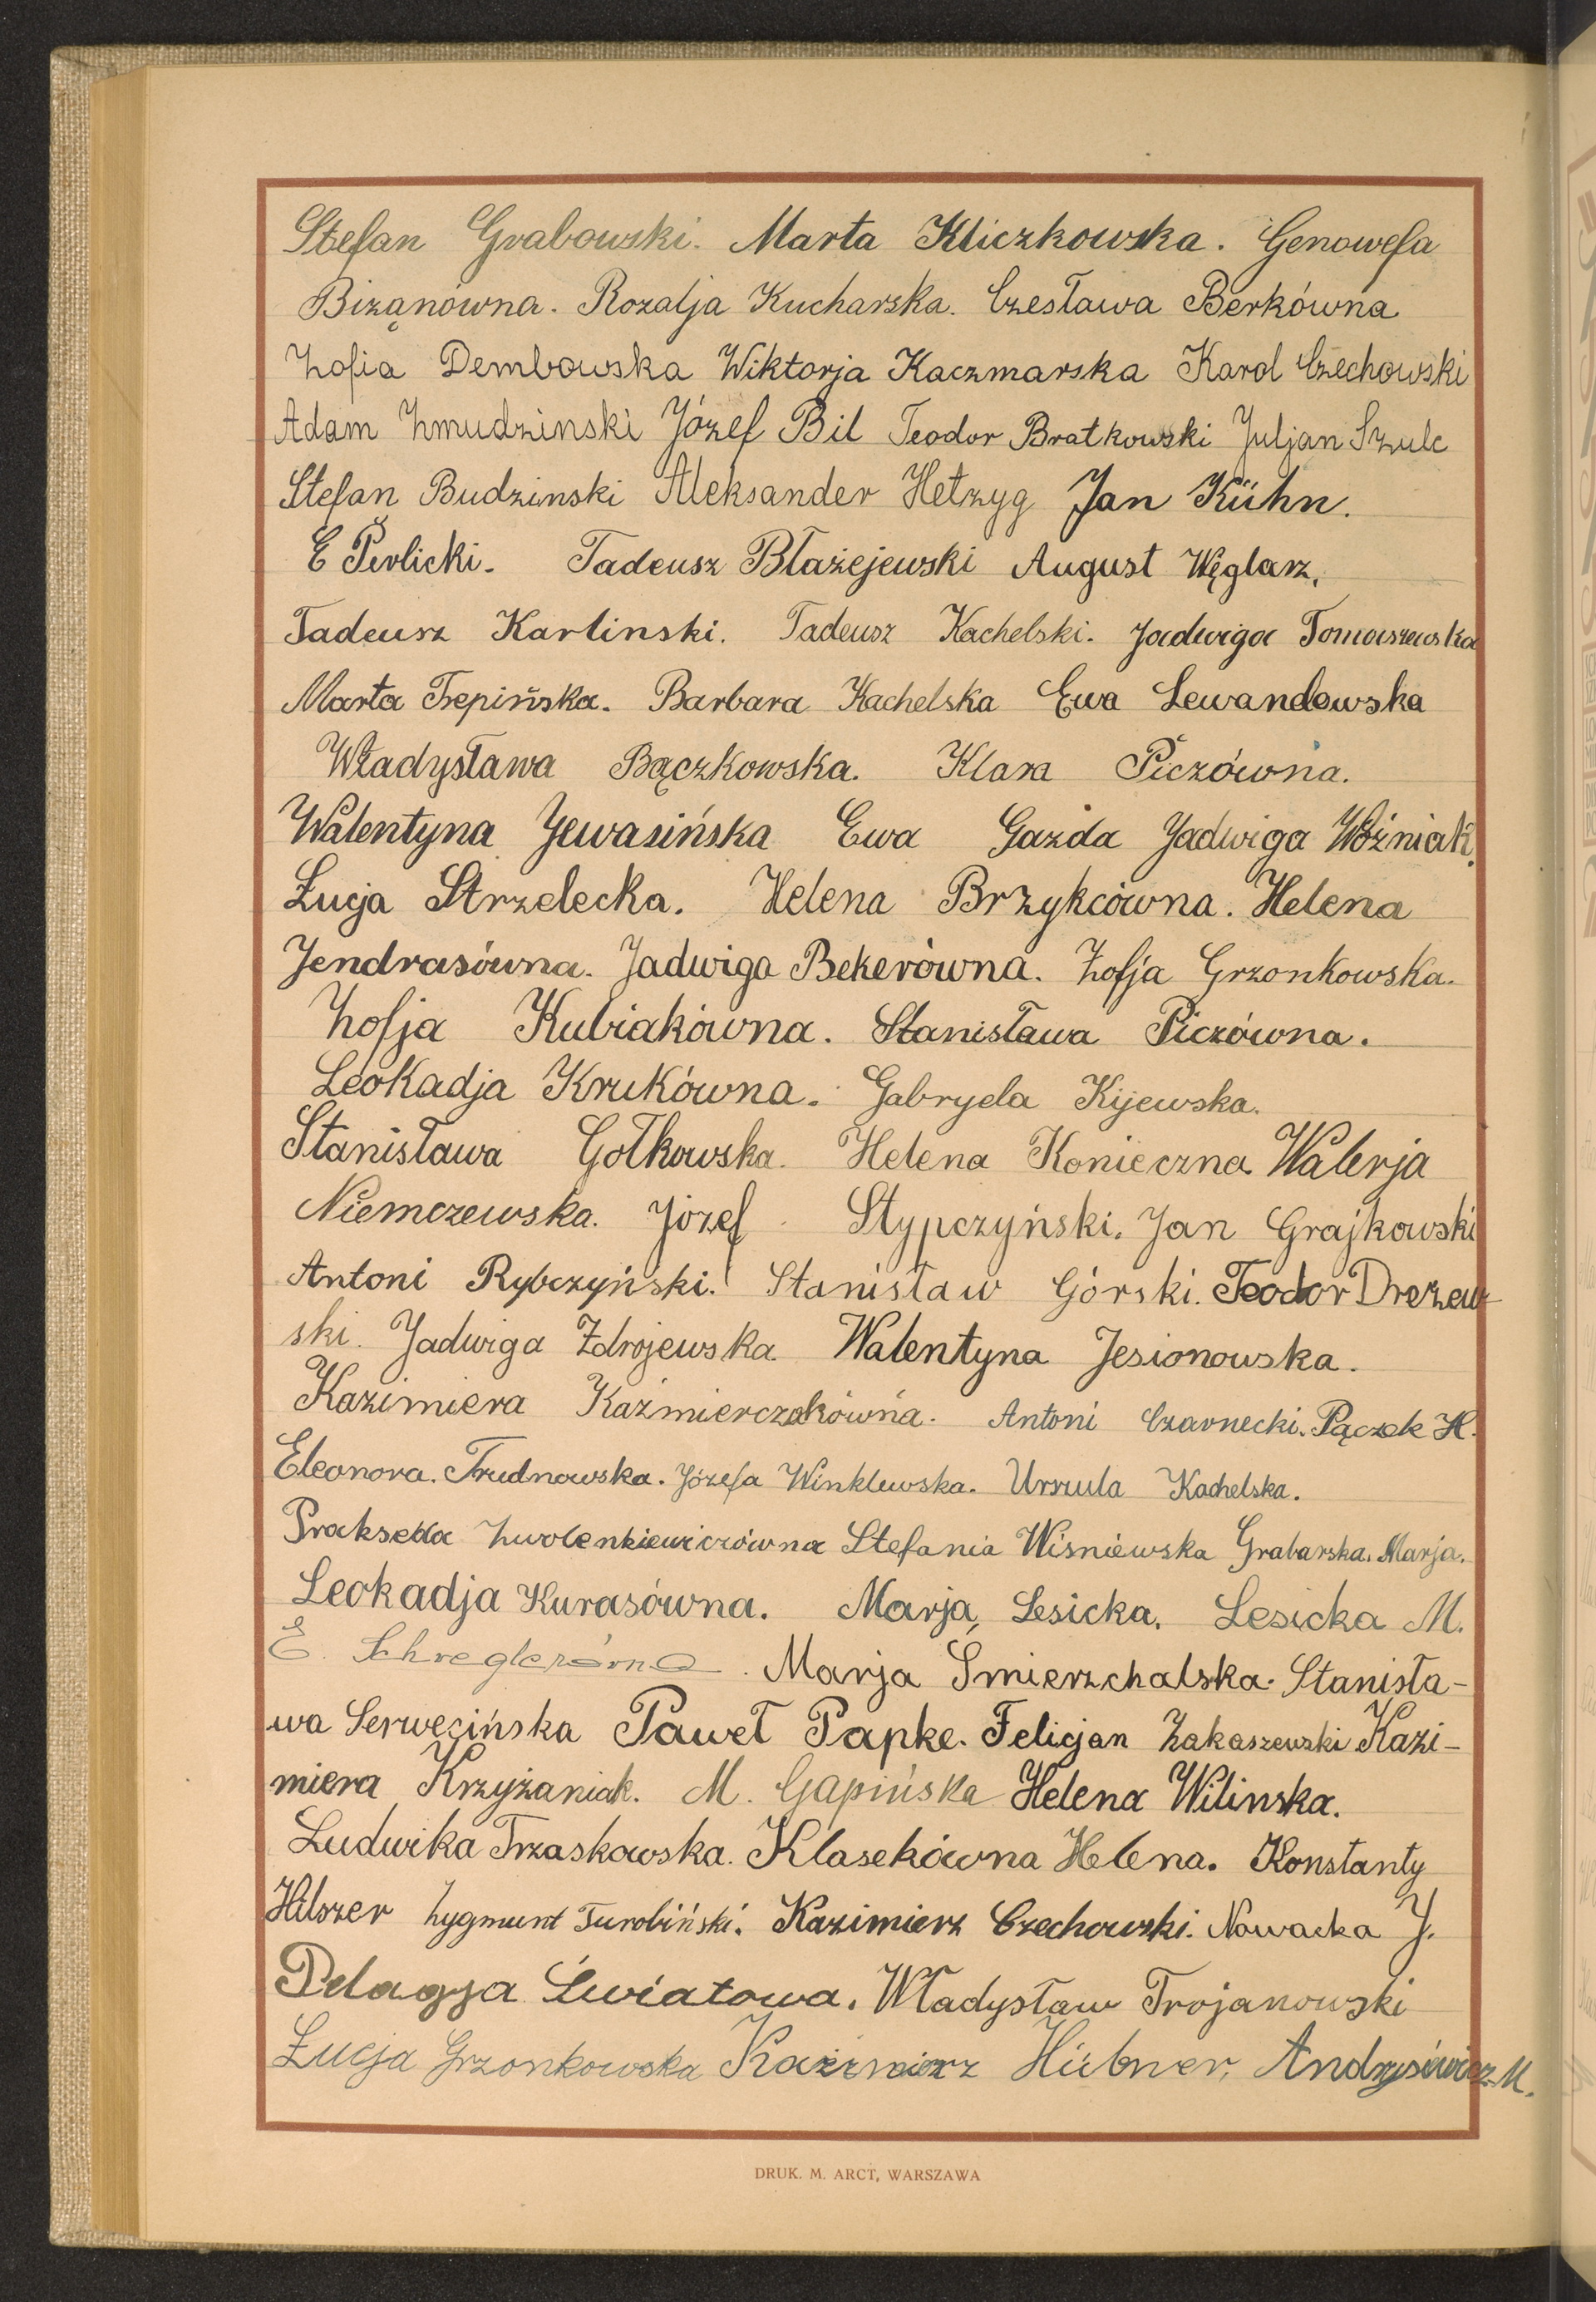 Stefan Grabowski. Marta Kliczkowska. Genowefa
Bizanówna. Rozalja Kucharska. Czesława Berkówna
Zofia Dembowska Wiktorja Kaczmarska Karol Czechowski
Adam Zmudzinski Józef Bil Teodor Bratkowski Juljan Szulc
Stefan Budzinski Aleksander Hetzyg Jan Kühn.
E Perlicki. Tadeusz Błażejewski August Węglarz.
Tadeusz Karlinski. Tadeusz Kachelski. Jadwiga Tomaszewska
Marta Trepińska. Barbara Kachelska Ewa Lewandowska
Władysława Bączkowska. Klara Piczówna.
Walentyna Jewasińska Ewa Gazda Jadwiga Woźniak.
Łucja Strzelecka. Helena Brzykcówna. Helena
Jendrasówna. Jadwiga Bekerówna. Zofja Grzonkowska.
Zofja Kubiakówna. Stanisława Piczówna.
Leokadja Krukówna. Gabryela Kijewska.
Stanisława Gołkowska. Helena Konieczna Walerja
Niemczewska. Józef Stypczyński. Jan Grajkowski
Antoni Rybczyński. Stanisław Górski. Teodor Drezew-
ski. Jadwiga Zdrojewska. Walentyna Jesionowska.
Kazimiera Kaźmierczakówna. Antoni Czarnecki. Pączek H.
Eleonora. Trudnowska. Józefa Winklewska. Urszula Kachelska.
Prakseda Zwolenkiewiczówna Stefania Wiśniewska Grabarska. Marja.
Leokadja Kurasówna. Marja, Lesicka. Lesicka M.
E. Schreglerówna. Marja Smierzchalska. Stanisła-
wa Serwecińska Paweł Papke. Felicjan Zakaszewski Kazi-
miera Krzyżaniak. M. Gapińska Helena Wilinska.
Ludwika Trzaskowska. Klasekówna Helena. Konstanty
Hilszer Zygmunt Turobiński. Kazimierz Czechowski. Nowacka J.
Pelagja Światowa. Władysław Trojanowski
Łucja Grzonkowska Kazimierz Hübner, Andrysiewicz M.
DRUK. M. ARCT, WARSZAWA